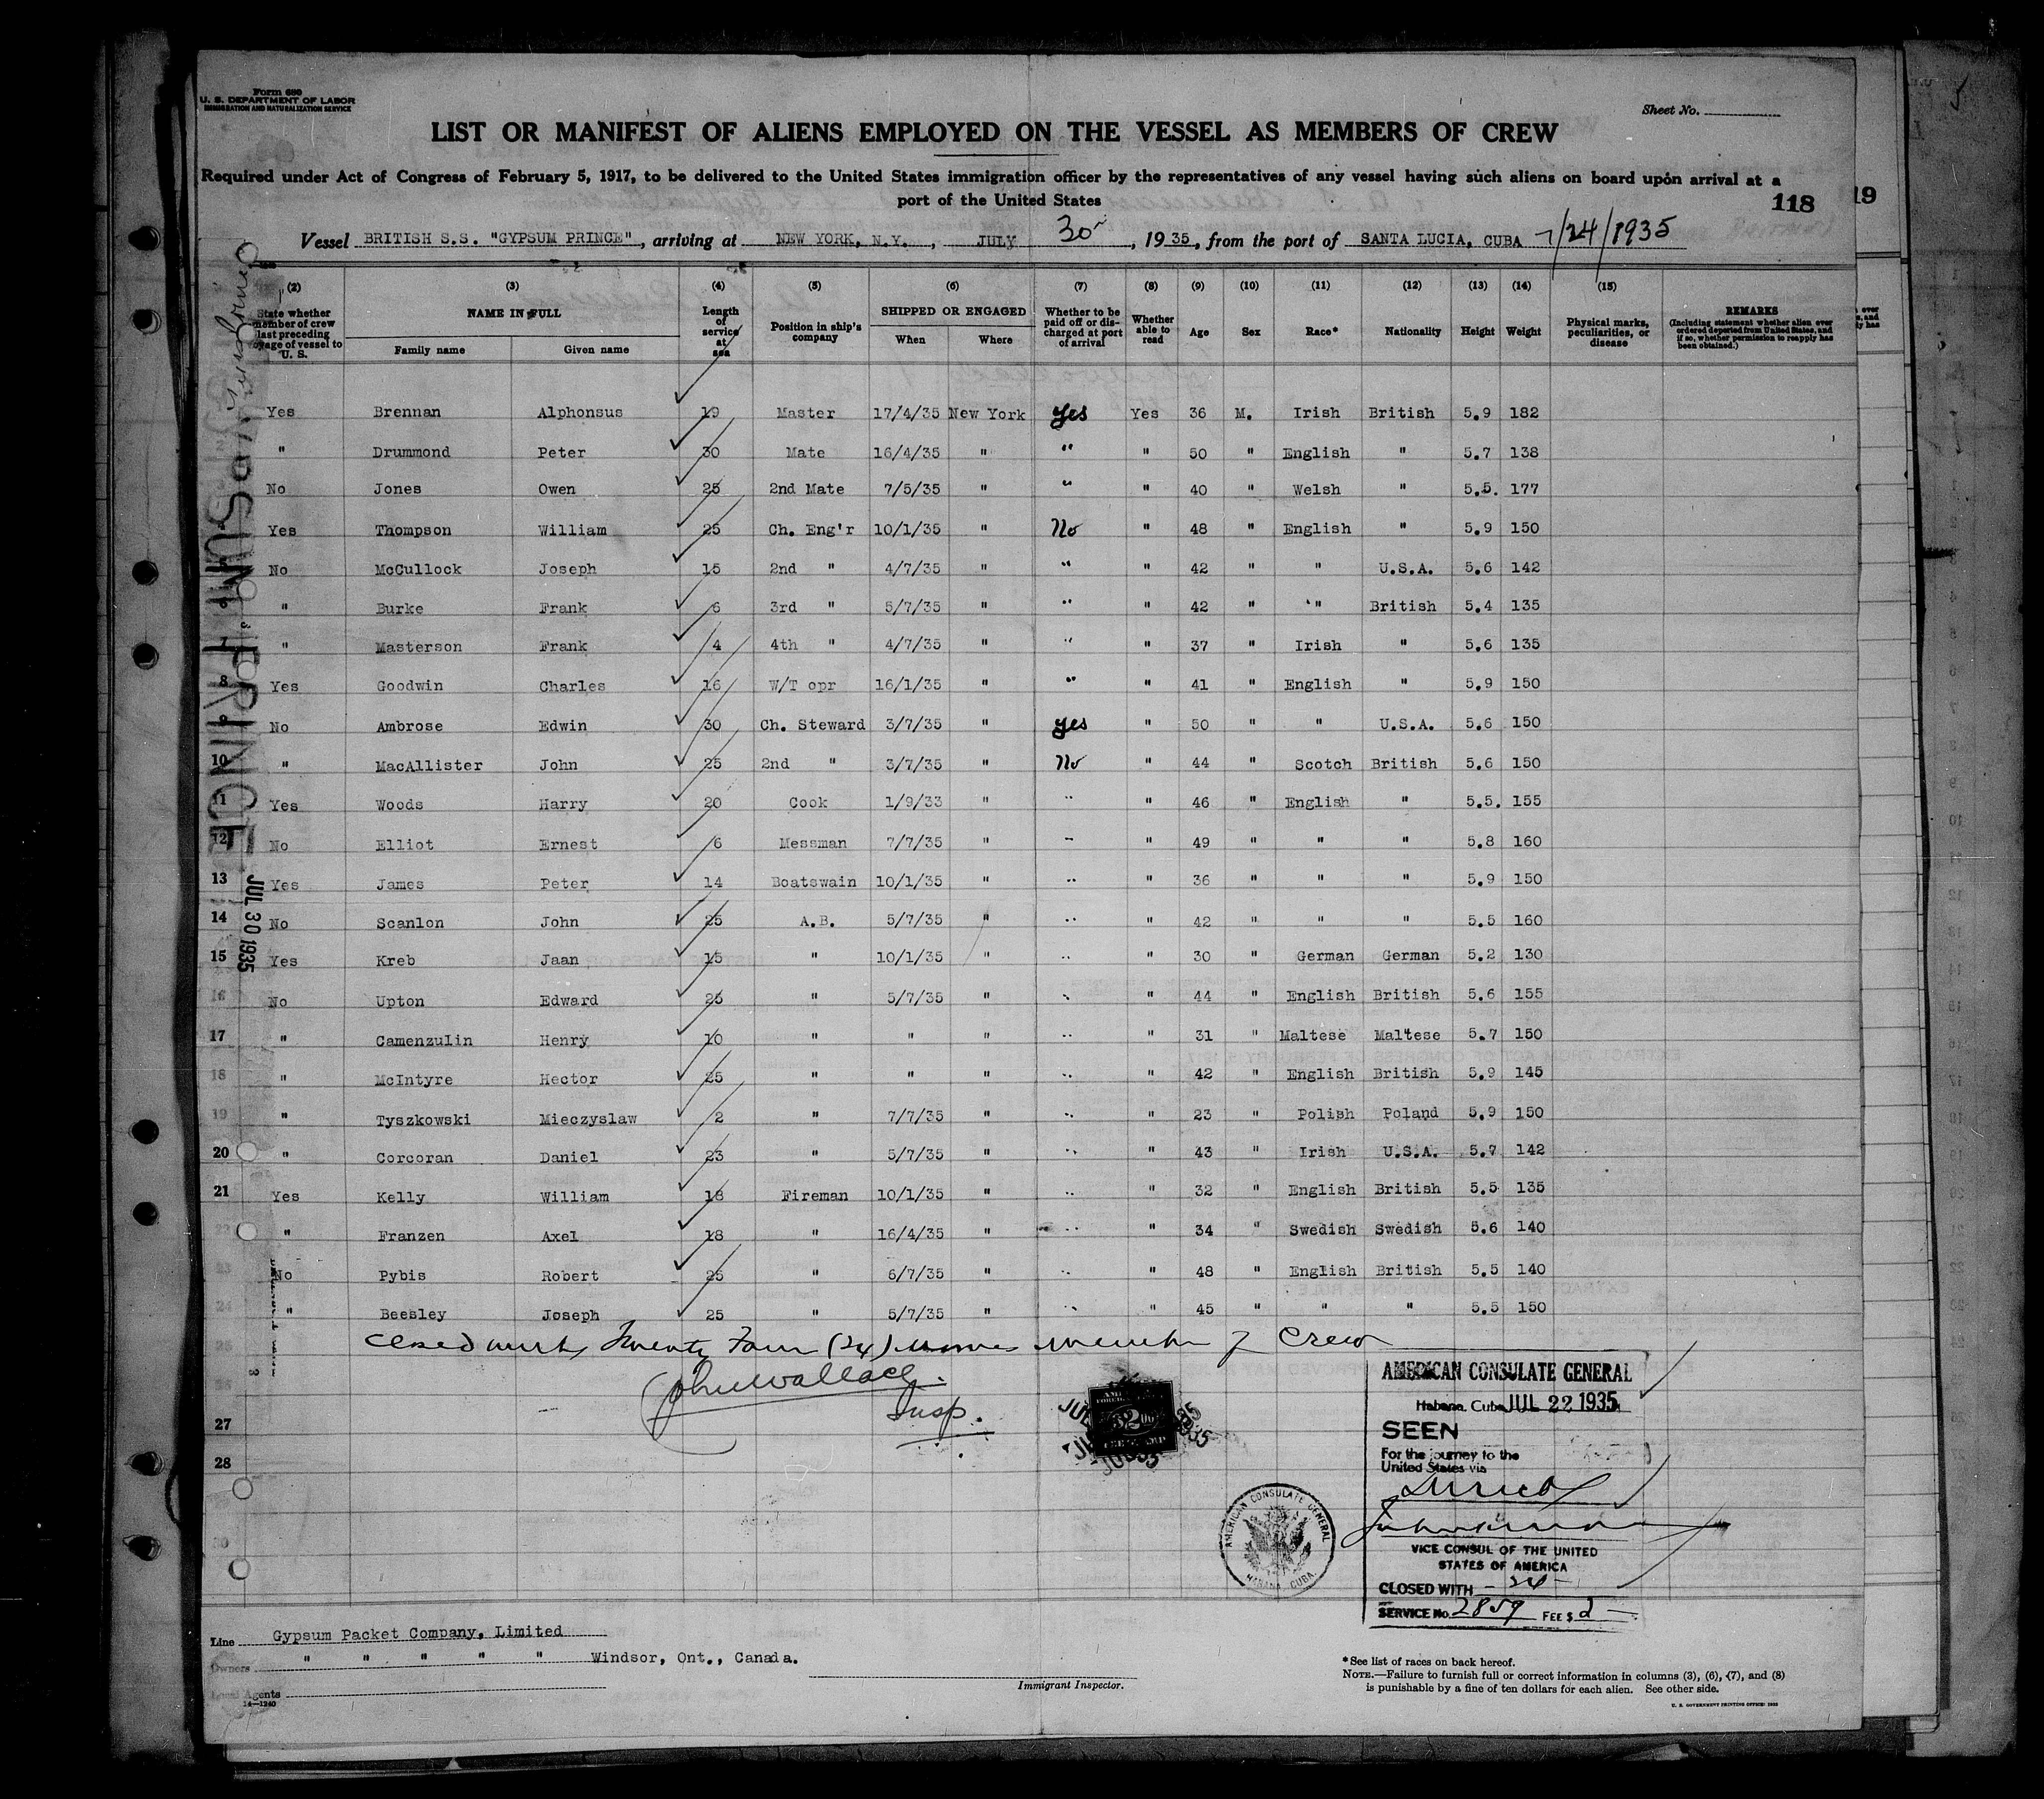 Form 680
U. S. DEPARTMENT OF LABOR
IMMIGRATION AND NATURALIZATION SERVICE
Sheet No.
LIST OR MANIFEST OF ALIENS EMPLOYED ON THE VESSEL AS MEMBERS OF CREW
Required under Act of Congress of February 5, 1917, to be delivered to the United States immigration officer by the representatives of any vessel having such aliens on board upon arrival at a
port of the United States
118
19
Vessel BRITISH S.S. "GYPSUM PRINCE", arriving at NEW YORK, N.Y., JULY 30, 1935, from the port of SANTA LUCIA, CUBA 7/24/1935
(2) (3) (4) (5) (6) (7) (8) (9) (10) (11) (12) (13) (14) (15)
State whether member of crew last preceding voyage of vessel to U. S. NAME IN FULL Family name Given name Length of service at sea Position in ship's company SHIPPED OR ENGAGED When Where Whether to be paid off or discharged at port of arrival Whether able to read Age Sex Race* Nationality Height Weight Physical marks, peculiarities, or disease REMARKS (Including statement whether alien ever ordered deported from United States, and if so, whether permission to reapply has been obtained.)
Yes Brennan Alphonsus 19 Master 17/4/35 New York yes Yes 36 M. Irish British 5.9 182
" Drummond Peter 30 Mate 16/4/35 " " " 50 " English " 5.7 138
No Jones Owen 25 2nd Mate 7/5/35 " " " 40 " Welsh " 5.5. 177
Yes Thompson William 25 Ch. Eng'r 10/1/35 " No " 48 " English " 5.9 150
No McCullock Joseph 15 2nd " 4/7/35 " " " 42 " " U.S.A. 5.6 142
" Burke Frank 6 3rd " 5/7/35 " " " 42 " " British 5.4 135
" Masterson Frank 4 4th " 4/7/35 " " " 37 " Irish " 5.6 135
8 Yes Goodwin Charles 16 W/T opr 16/1/35 " " " 41 " English " 5.9 150
No Ambrose Edwin 30 Ch. Steward 3/7/35 " yes " 50 " " U.S.A. 5.6 150
10 " MacAllister John 25 2nd " 3/7/35 " No " 44 " Scotch British 5.6 150
11 Yes Woods Harry 20 Cook 1/9/33 " " " 46 " English " 5.5. 155
12 No Elliot Ernest 6 Messman 7/7/35 " " " 49 " " " 5.8 160
13 Yes James Peter 14 Boatswain 10/1/35 " " " 36 " " " 5.9 150
14 No Scanlon John 25 A.B. 5/7/35 " " " 42 " " " 5.5 160
15 Yes Kreb Jaan 15 " 10/1/35 " " " 30 " German German 5.2 130
16 No Upton Edward 25 " 5/7/35 " " " 44 " English British 5.6 155
17 " Camenzulin Henry 10 " " " " " 31 " Maltese Maltese 5.7 150
18 " McIntyre Hector 25 " " " " " 42 " English British 5.9 145
19 " Tyszkowski Mieczyslaw 2 " 7/7/35 " " " 23 " Polish Poland 5.9 150
20 " Corcoran Daniel 23 " 5/7/35 " " " 43 " Irish U.S.A. 5.7 142
21 Yes Kelly William 18 Fireman 10/1/35 " " " 32 " English British 5.5 135
22 " Franzen Axel 18 " 16/4/35 " " " 34 " Swedish Swedish 5.6 140
23 No Pybis Robert 25 " 6/7/35 " " " 48 " English British 5.5 140
24 " Beesley Joseph 25 " 5/7/35 " " " 45 " " " 5.5 150
25 Closed with Twenty Four (24) members of Crew
John Wallace
Insp.
27
28
30
PRINCE
JUL 30 1935
AMERICAN CONSULATE GENERAL
Habana, Cuba JUL 22 1935
SEEN
For the journey to the
United States via
VICE CONSUL OF THE UNITED
STATES OF AMERICA
CLOSED WITH - 24 -
SERVICE No. 2859 FEE $ 2 —
AMERICAN CONSULATE GENERAL
HABANA, CUBA.
Line Gypsum Packet Company, Limited
Owners " " " " " Windsor, Ont., Canada.
Local Agents
14—1240
Immigrant Inspector.
*See list of races on back hereof.
NOTE.—Failure to furnish full or correct information in columns (3), (6), (7), and (8)
is punishable by a fine of ten dollars for each alien. See other side.
U. S. GOVERNMENT PRINTING OFFICE